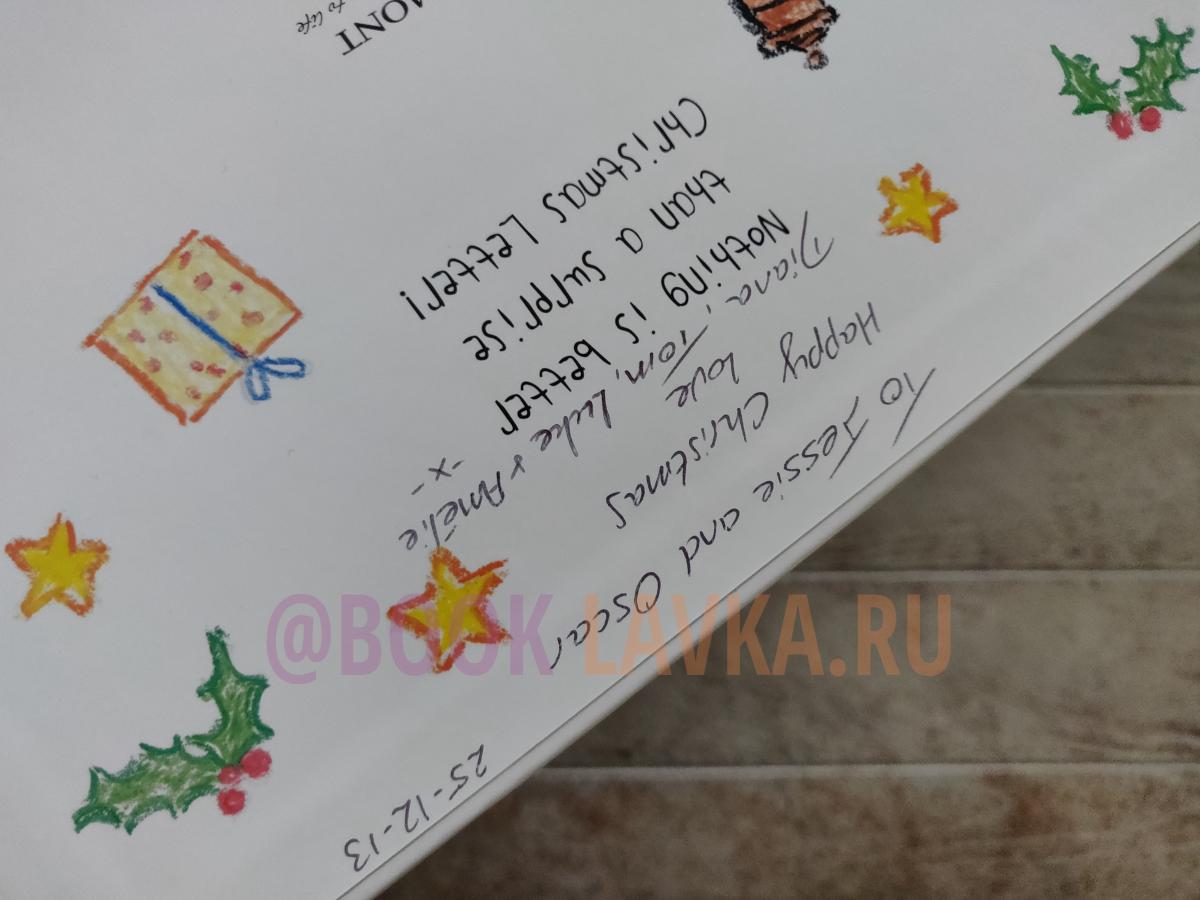 25-12-13
To Jessie and Oscar
Happy Christmas
love
Diana, Tom, Luke + Amélie
-x-
Nothing is better
than a surprise
Christmas Letter!
MONT
to life
@BOOK-LAVKA.RU